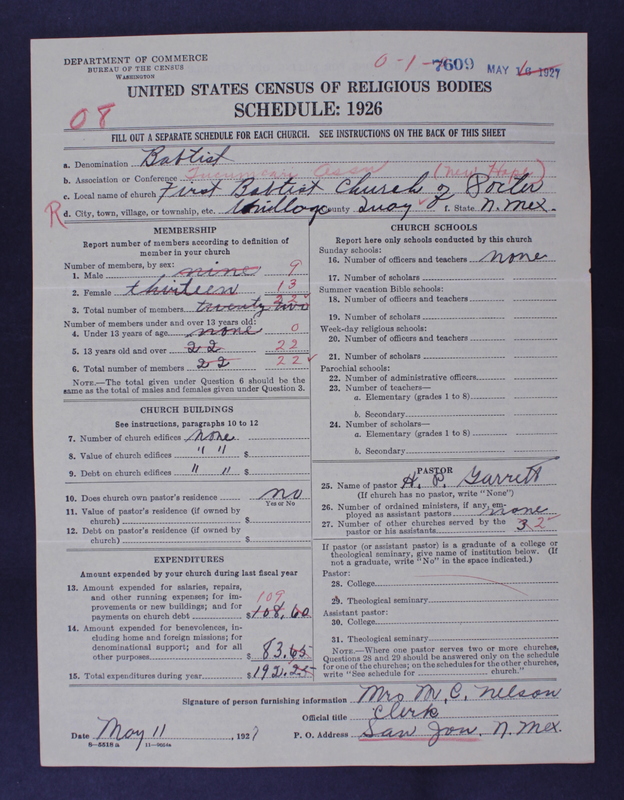 DEPARTMENT OF COMMERCE
BUREAU OF THE CENSUS
WASHINGTON
0-1-7609 MAY 16 1927
UNITED STATES CENSUS OF RELIGIOUS BODIES
SCHEDULE: 1926
08
FILL OUT A SEPARATE SCHEDULE FOR EACH CHURCH. SEE INSTRUCTIONS ON THE BACK OF THIS SHEET
a. Denomination Babtist
b. Association or Conference Tucumcari Assn
c. Local name of church First Babtist Church of Porter
R d. City, town, village, or township, etc. Village County Quay f. State N. Mex.
MEMBERSHIP
Report number of members according to definition of member in your church
Number of members, by sex:
1. Male nine 9
2. Female thirteen 13
3. Total number of members twenty two 22
Number of members under and over 13 years old:
4. Under 13 years of age none 0
5. 13 years old and over 22 22
6. Total number of members 22 22
NOTE.—The total given under Question 6 should be the same as the total of males and females given under Question 3.
CHURCH BUILDINGS
See instructions, paragraphs 10 to 12
7. Number of church edifices none
8. Value of church edifices " " $
9. Debt on church edifices " " $
10. Does church own pastor's residence no
Yes or No
11. Value of pastor's residence (if owned by church) $
12. Debt on pastor's residence (if owned by church) $
EXPENDITURES
Amount expended by your church during last fiscal year
13. Amount expended for salaries, repairs, and other running expenses; for improvements or new buildings; and for payments on church debt $108.60
109
14. Amount expended for benevolences, including home and foreign missions; for denominational support; and for all other purposes $83.65
15. Total expenditures during year $192.25
CHURCH SCHOOLS
Report here only schools conducted by this church
Sunday schools:
16. Number of officers and teachers none
17. Number of scholars
Summer vacation Bible schools:
18. Number of officers and teachers
19. Number of scholars
Week-day religious schools:
20. Number of officers and teachers
21. Number of scholars
Parochial schools:
22. Number of administrative officers
23. Number of teachers—
a. Elementary (grades 1 to 8)
b. Secondary
24. Number of scholars—
a. Elementary (grades 1 to 8)
b. Secondary
PASTOR
25. Name of pastor H. P. Garrett
(If church has no pastor, write "None")
26. Number of ordained ministers, if any, employed as assistant pastors none
27. Number of other churches served by the pastor or his assistants 3 2
If pastor (or assistant pastor) is a graduate of a college or theological seminary, give name of institution below. (If not a graduate, write "No" in the space indicated.)
Pastor:
28. College
29. Theological seminary
Assistant pastor:
30. College
31. Theological seminary
NOTE.—Where one pastor serves two or more churches, Questions 28 and 29 should be answered only on the schedule for one of the churches; on the schedules for the other churches, write "See schedule for church."
Signature of person furnishing information Mrs M. C. Nelson
Official title Clerk
Date May 11, 1927 P. O. Address San Jon. N. Mex.
8-5518 a